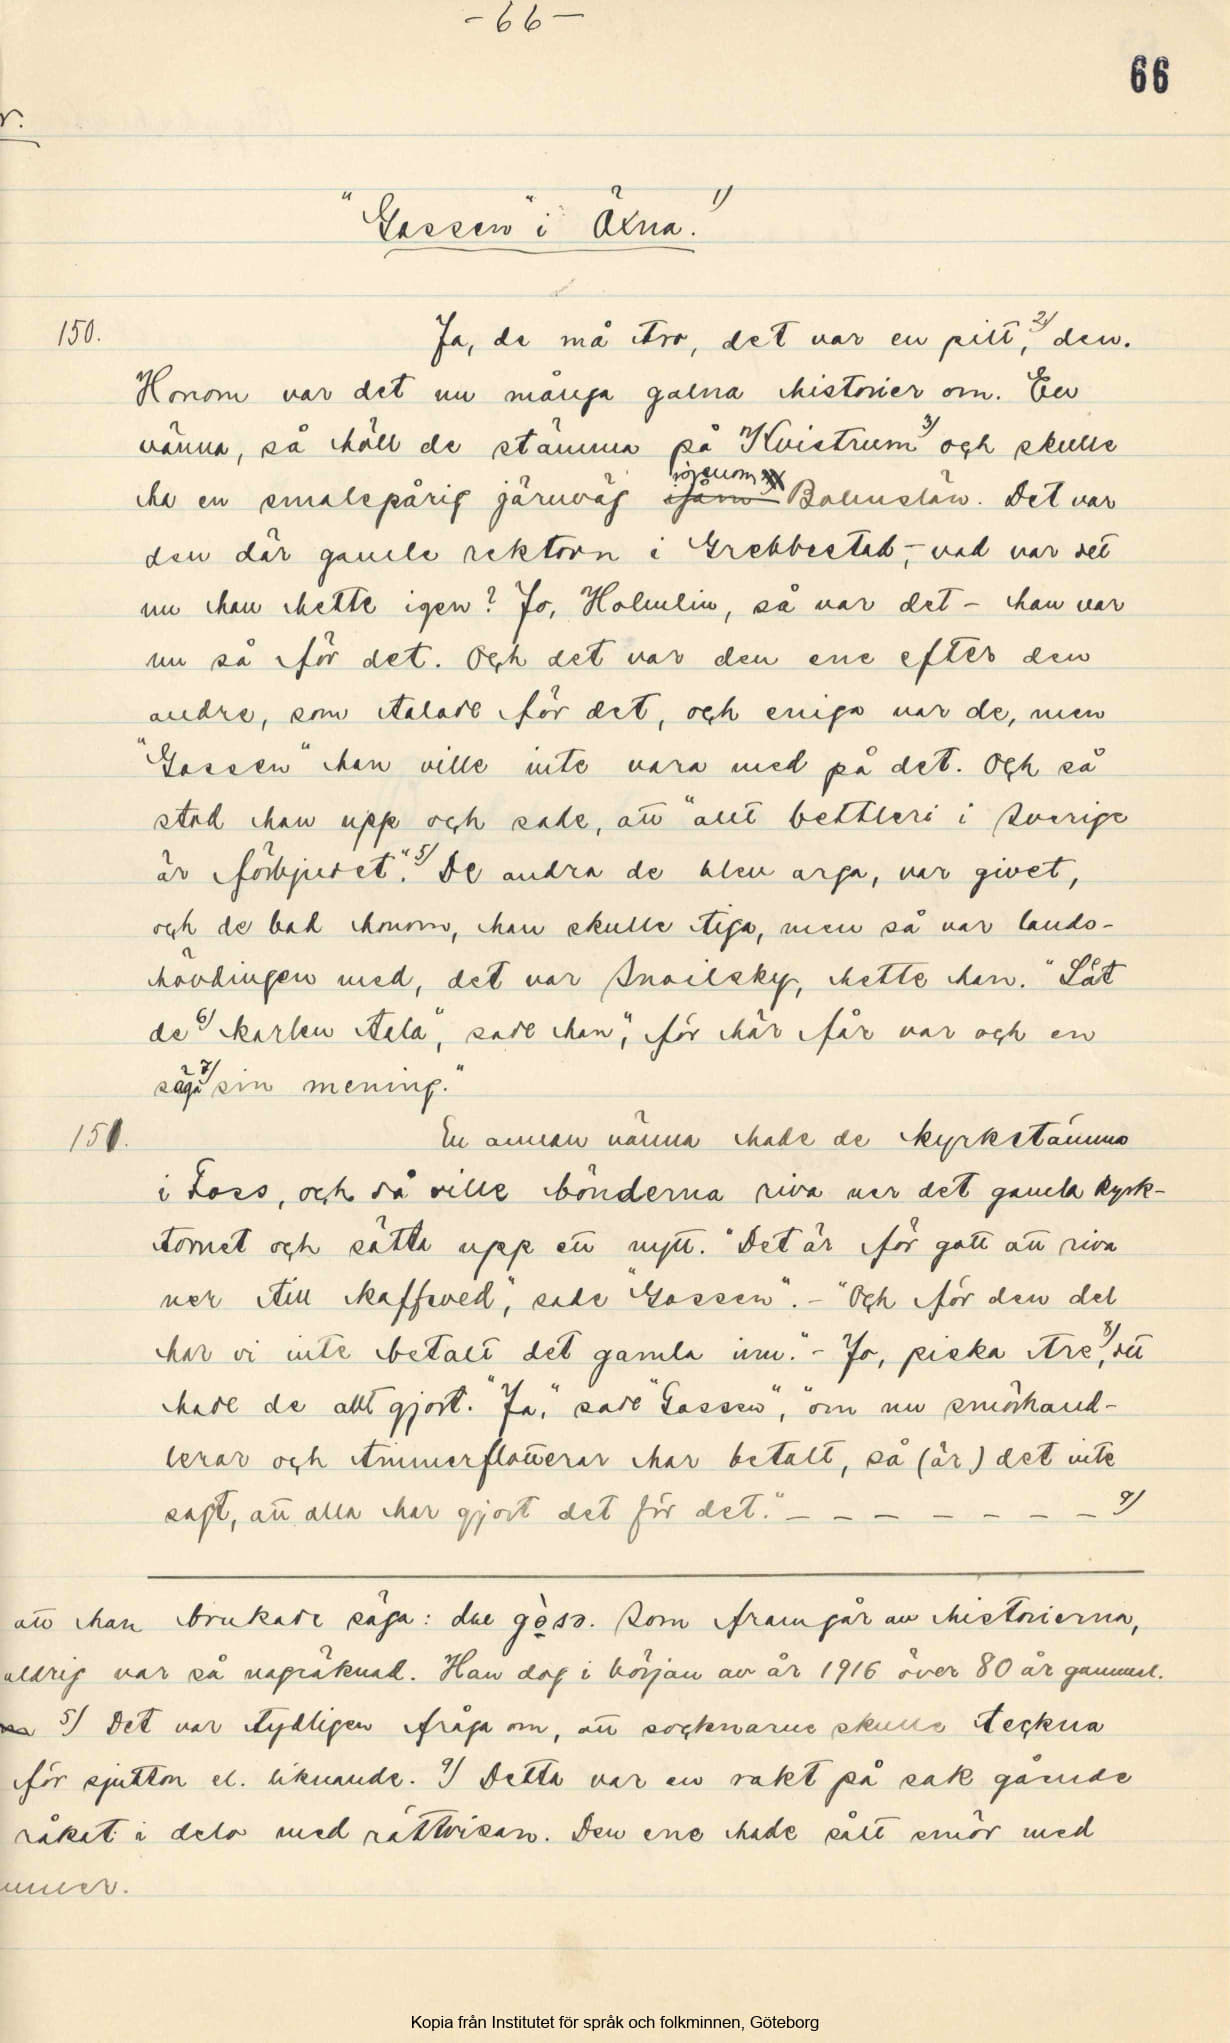 -66-
66
r.
"Gossen" i Öxna. 1)
150. Ja, de må tro, det var en pilt, 2) den.
Honom var det nu många galna historier om. En
vänna, så höll de stämma på Kvistrum 3) och skulle
ha en smalspårig järnväg igenom Bohuslän. Det var
den där gamle rektorn i Grebbestad, - vad var det
nu han hette igen? Jo, Holmlin, så var det - han var
nu så för det. Och det var den ene efter den
andre, som talade för det, och eniga var de, men
"Gossen" han ville inte vara med på det. Och så
stod han upp och sade, att "allt bettleri i Sverige
är förbjudet". 5) De andra de blev arga, var givet,
och de bad honom, han skulle tiga, men så var lands-
hövdingen med, det var Snoilsky, hette han. "Låt
de 6) karlen tala", sade han, "för här får var och en
säga 7) sin mening."
151. En annan vänna hade de kyrkstämma
i Foss, och så ville bönderna riva ner det gamla kyrk-
tornet och sätta upp ett nytt. "Det är för gott att riva
ner till kaffeved", sade "Gossen". - "Och för den del
har vi inte betalt det gamla inn." - Jo, piska tre 8), det
hade de allt gjort. "Ja," sade "Gossen", "om nu smörhand-
lerar och timmerflotterar har betalt, så (är) det inte
sagt, att alla har gjort det för det." - - - - - - - 9)
att han brukade säga: due gòss. Som framgår av historierna,
aldrig var så nagräknad. Han dog i början av år 1916 över 80 år gammal.
5) Det var tydligen fråga om, att socknarne skulle teckna
för sjutton el. liknande. 9) Detta var en rakt på sak gående
råkat i delo med rättvisan. Den ene hade sålt smör med
Kopia från Institutet för språk och folkminnen, Göteborg